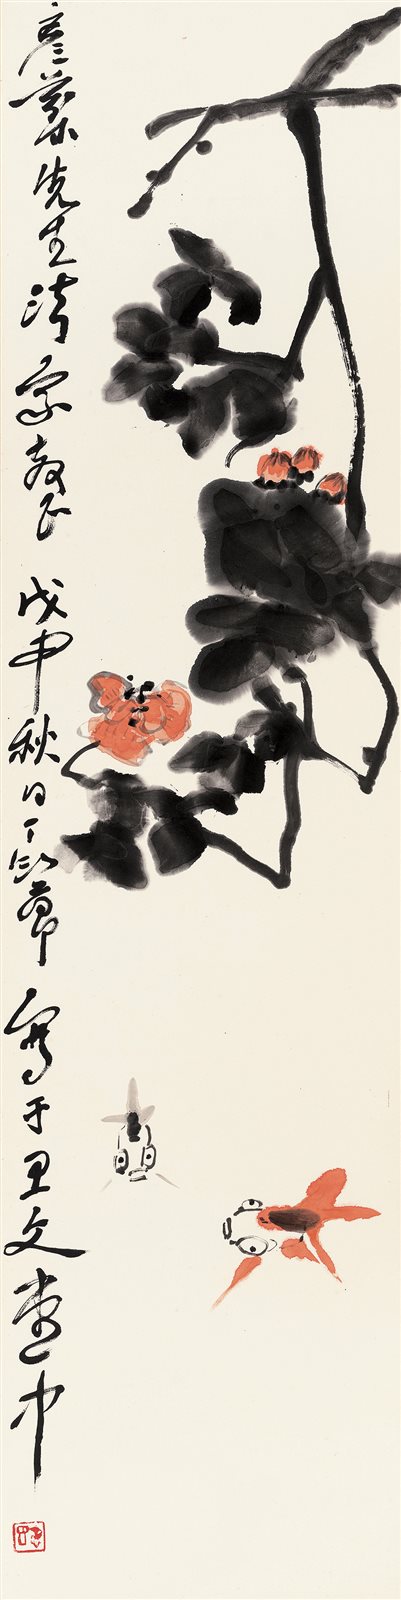 彥棻先生清教正 戊申秋日丁衍庸寫于文堂中